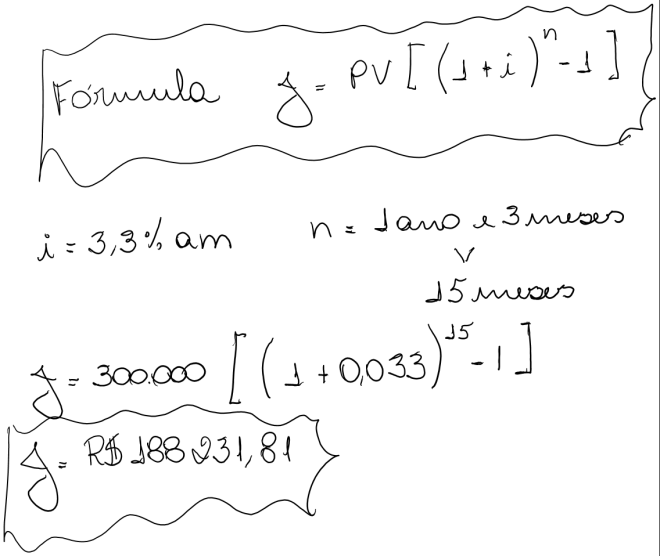 Fórmula J = PV [ (1 + i)^n - 1 ]
i = 3,3% am n = 1 ano e 3 meses
15 meses
J = 300.000 [ ( 1 + 0,033)^15 - 1 ]
J = R$ 188 231,81